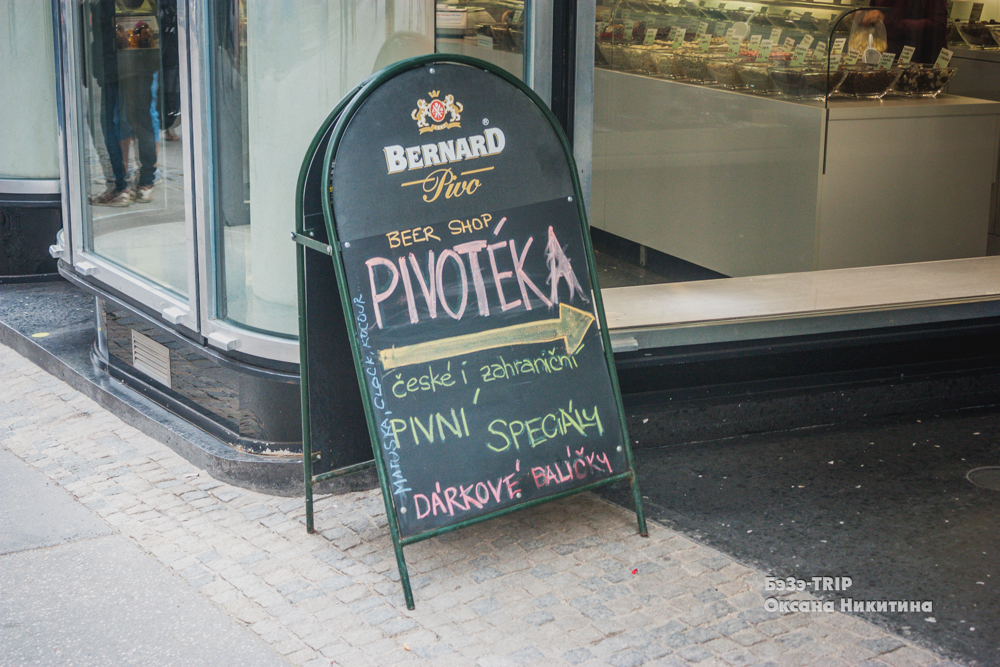 BERNARD®
Pivo
BEER SHOP
PIVOTÉKA
české i zahraniční
PIVNÍ SPECIÁLY
DÁRKOVÉ BALÍČKY
MATUŠKA, CLOCK, KOCOUR
БэЗэ-TRIP
Оксана Никитина